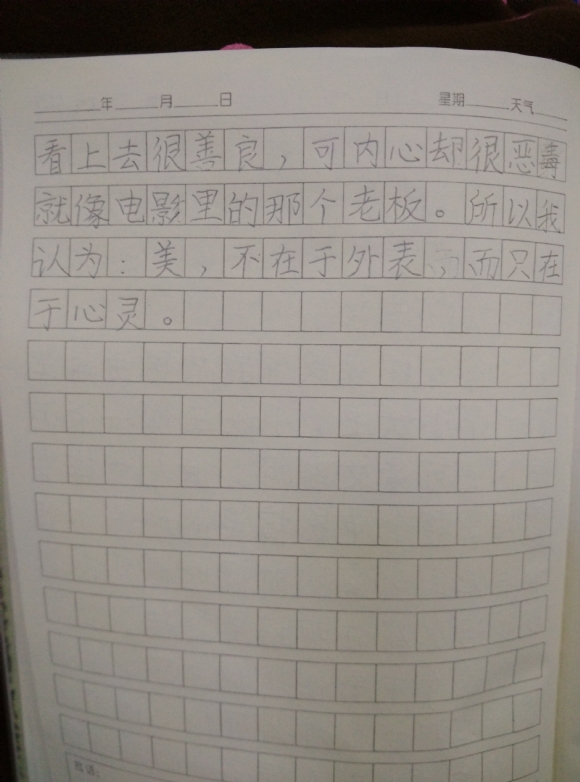 年 月 日 星期 天气
看上去很善良，可内心却很恶毒
就像电影里的那个老板。所以我
认为：美，不在于外表，而只在
于心灵。
批语：